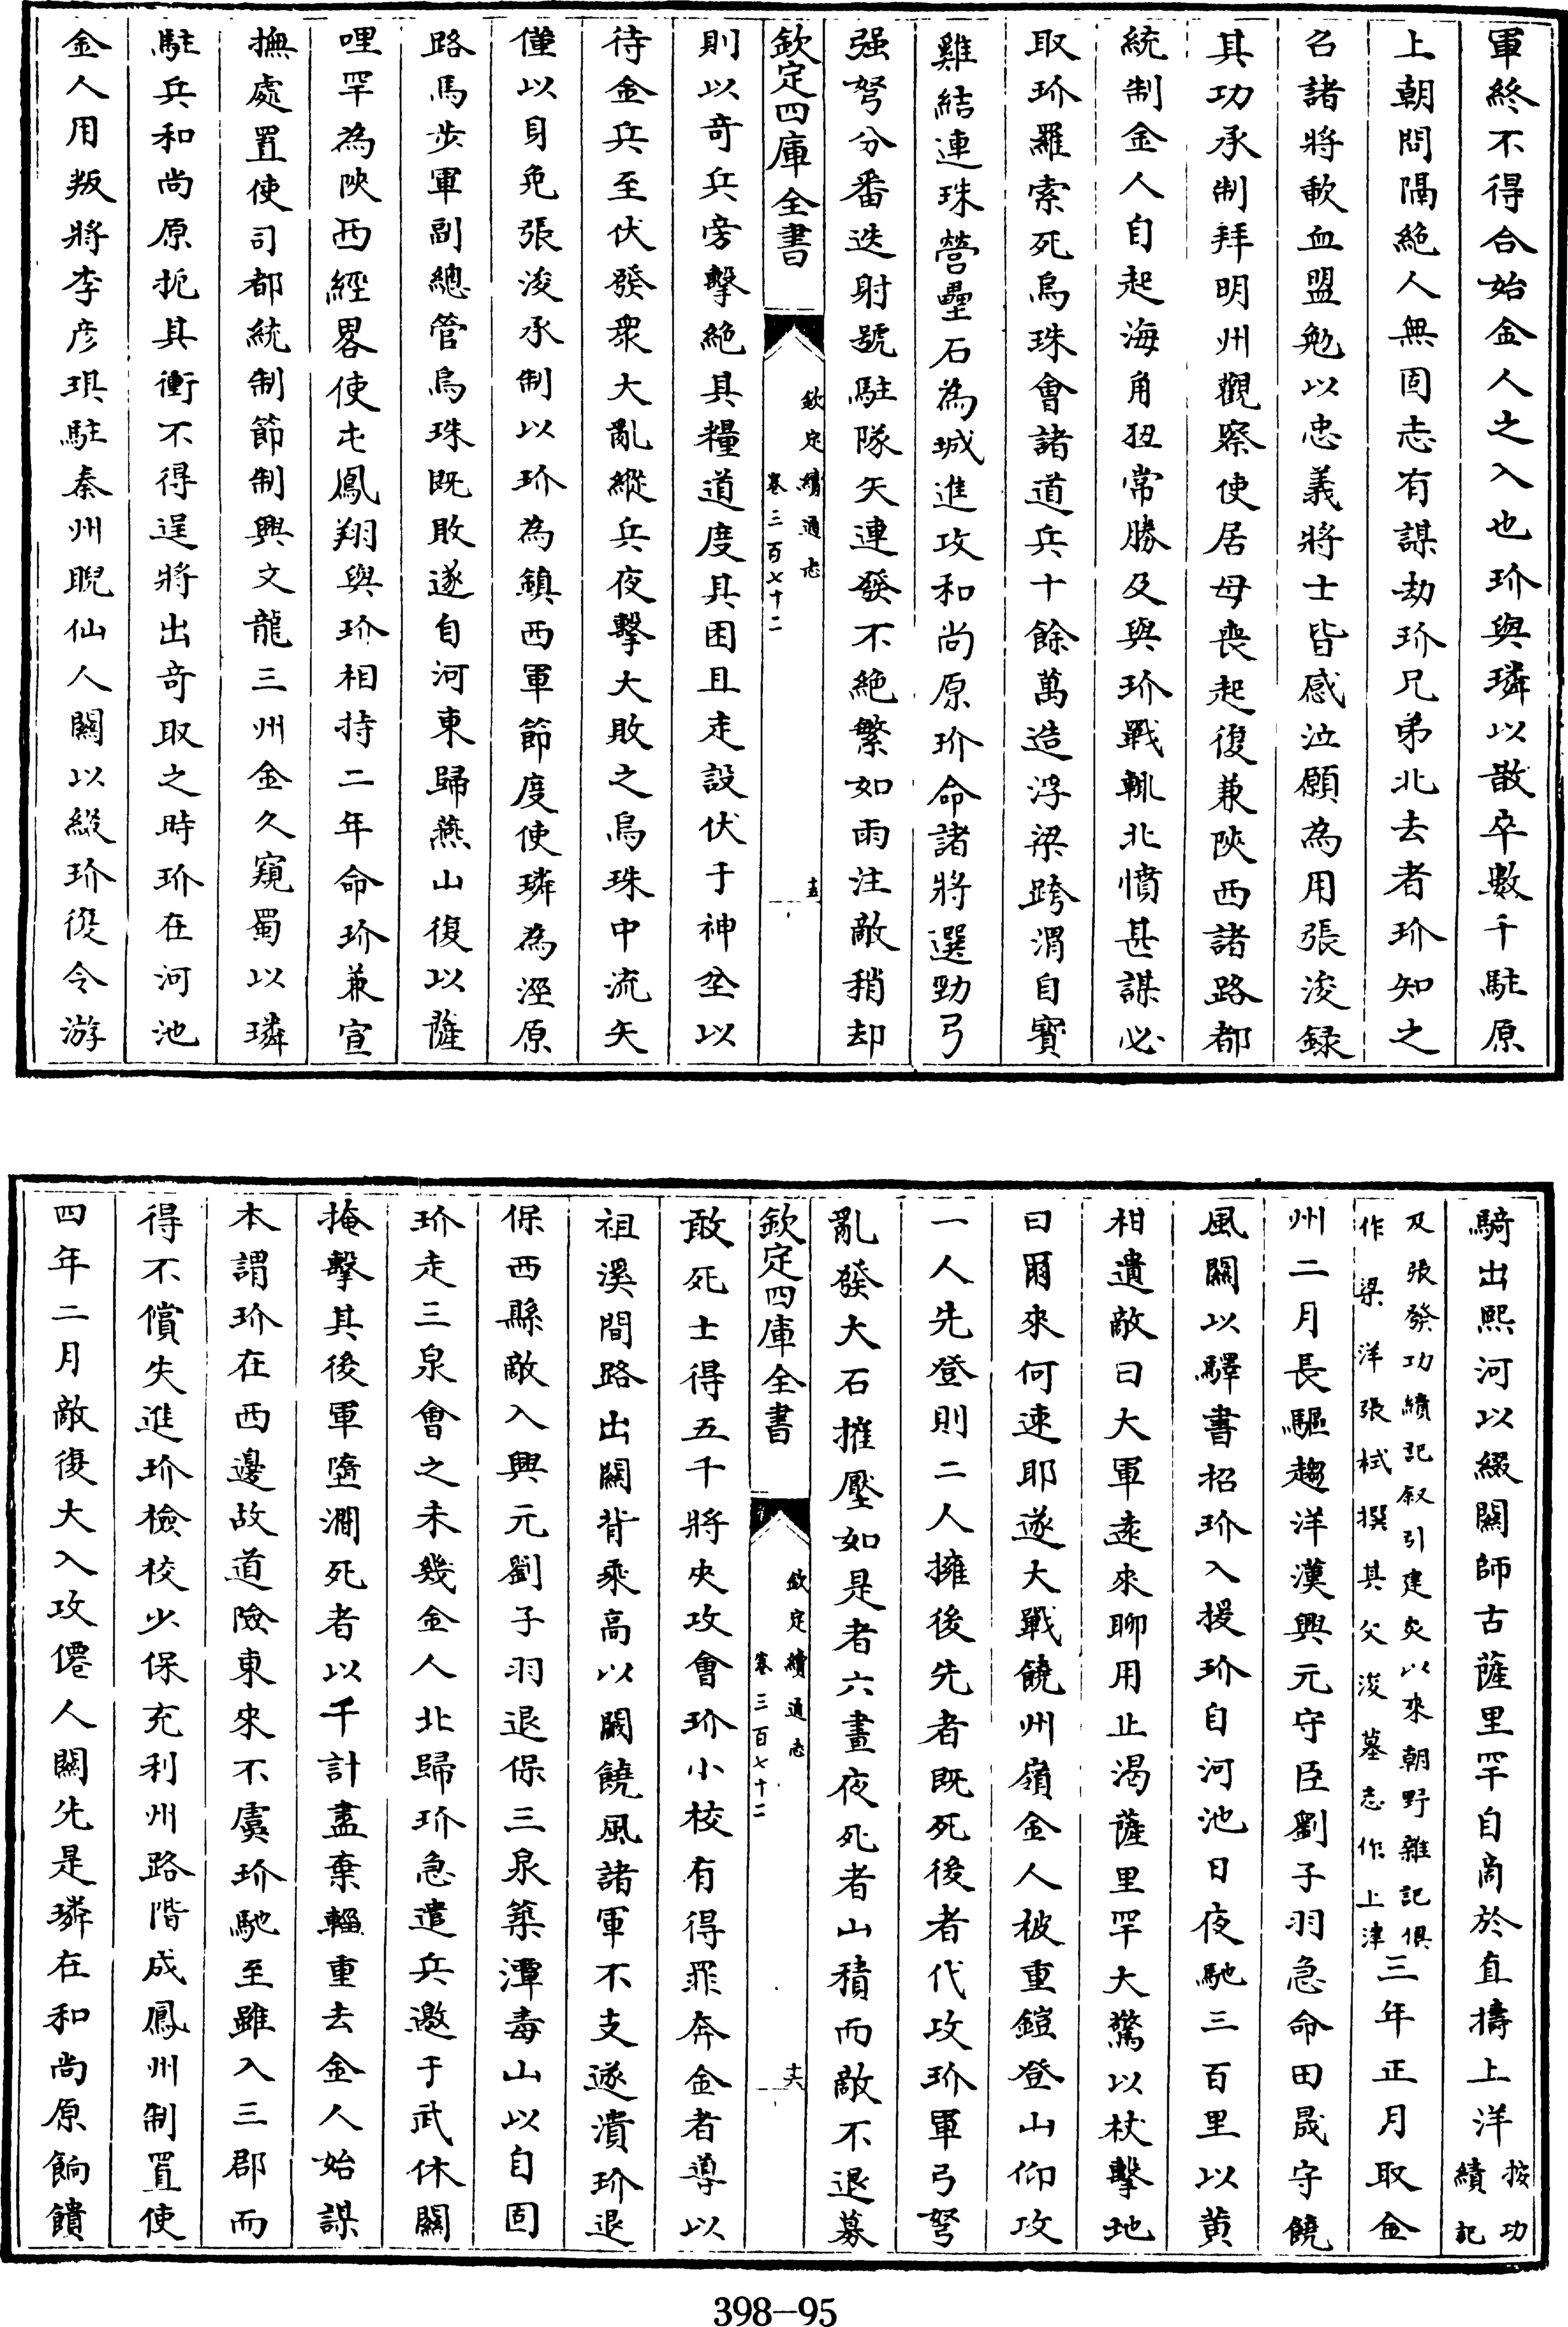 軍終不得合始金人之入也玠與璘以散卒數千駐原
上朝問隔絶人無固志有謀劫玠兄弟北去者玠知之
召諸將歃血盟勉以忠義將士皆感泣願為用張浚録
其功承制拜明州觀察使居母喪起復兼陜西諸路都
統制金人自起海角狃常勝及與玠戰輒北憤甚謀必
取玠羅索死烏珠會諸道兵十餘萬造浮梁跨渭自寳
雞結連珠營壘石為城進攻和尚原玠命諸將選勁弓
强弩分番迭射號駐隊矢連發不絶繁如雨注敵稍却
欽定四庫全書
欽定續通志
卷三百七十二
十五
則以竒兵旁擊絶其糧道度其困且走設伏于神坌以
待金兵至伏發衆大亂縱兵夜擊大敗之烏珠中流矢
僅以身免張浚承制以玠為鎮西軍節度使璘為涇原
路馬步軍副總管烏珠既敗遂自河東歸燕山復以薩
哩罕為陜西經畧使屯鳳翔與玠相持二年命玠兼宣
撫處置使司都統制節制興文龍三州金久窺蜀以璘
駐兵和尚原扼其衝不得逞將出竒取之時玠在河池
金人用叛將李彦琪駐秦州睨仙人關以綴玠復令游
騎出熙河以綴關師古薩里罕自商於直擣上洋按功績記
及張發功績記叙引建炎以來朝野雜記俱
作梁洋張栻撰其父浚墓志作上津
三年正月取金
州二月長驅趨洋漢興元守臣劉子羽急命田晟守饒
風關以驛書招玠入援玠自河池日夜馳三百里以黄
柑遺敵曰大軍逺來聊用止渴薩里罕大驚以杖擊地
曰爾來何速耶遂大戰饒州嶺金人被重鎧登山仰攻
一人先登則二人擁後先者既死後者代攻玠軍弓弩
亂發大石摧壓如是者六晝夜死者山積而敵不退募
欽定四庫全書
欽定續通志
卷三百七十二
十六
敢死士得五千將夾攻會玠小校有得罪奔金者導以
祖溪間路出關背乘高以闞饒風諸軍不支遂潰玠退
保西縣敵入興元劉子羽退保三泉築潭毒山以自固
玠走三泉會之未幾金人北歸玠急遣兵邀于武休關
掩擊其後軍墮澗死者以千計盡棄輜重去金人始謀
本謂玠在西邊故道險東來不虞玠馳至雖入三郡而
得不償失進玠檢校少保充利州路階成鳳州制置使
四年二月敵復大入攻僊人關先是璘在和尚原餉饋
398-95